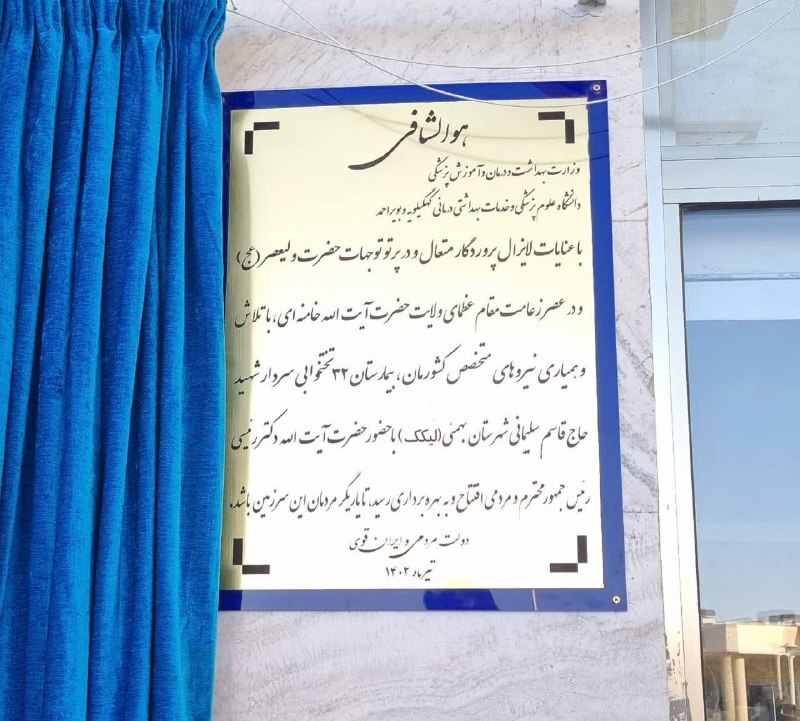 هوالشافی
وزارت بهداشت و درمان و آموزش پزشکی
دانشگاه علوم پزشکی و خدمات بهداشتی درمانی کهگیلویه و بویراحمد
با عنایات لایزال پروردگار متعال و در پرتو توجهات حضرت ولیعصر (عج)
و در عصر زعامت مقام عظمای ولایت حضرت آیت الله خامنه ای، با تلاش
و همیاری نیروهای متخصص کشورمان، بیمارستان ۳۲ تختخوابی سردار شهید
حاج قاسم سلیمانی شهرستان بهمئی (لیکک) با حضور حضرت آیت الله دکتر رئیسی
رئیس جمهور محترم و مردمی افتتاح و به بهره برداری رسید، تا یاریگر مردمان این سرزمین باشد.
دولت مردمی و ایران قوی
تیرماه ۱۴۰۲